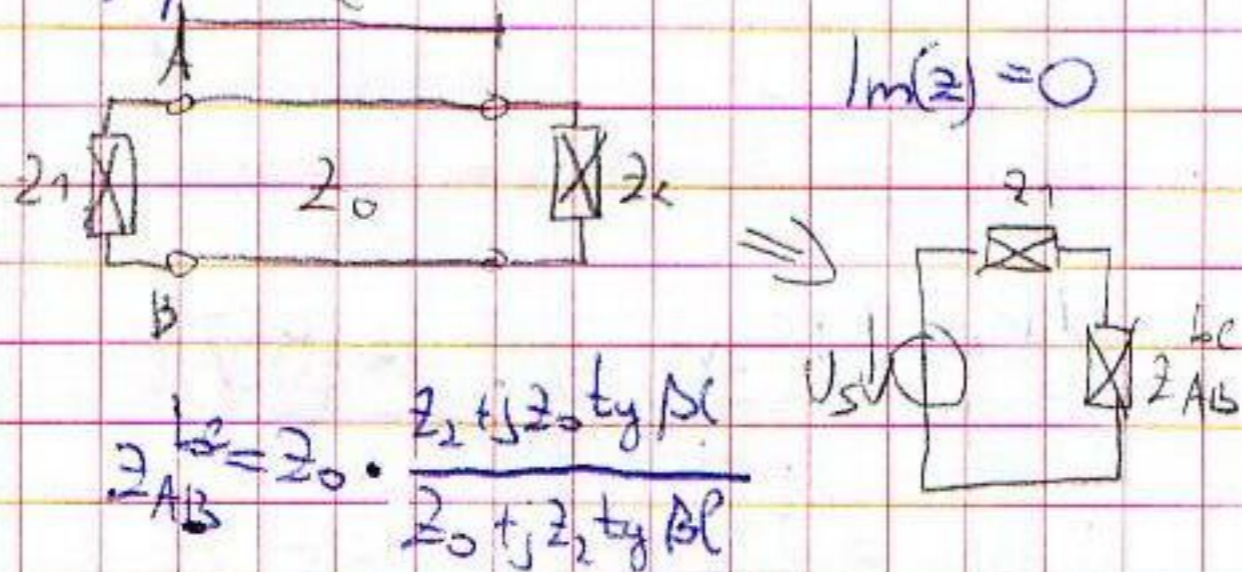 A
Im(z) = 0
Z1
Z0
Z2
B
Z1
Us
Z AB
Z AB = Z0 · (Z2 + j Z0 tg βl) / (Z0 + j Z2 tg βl)